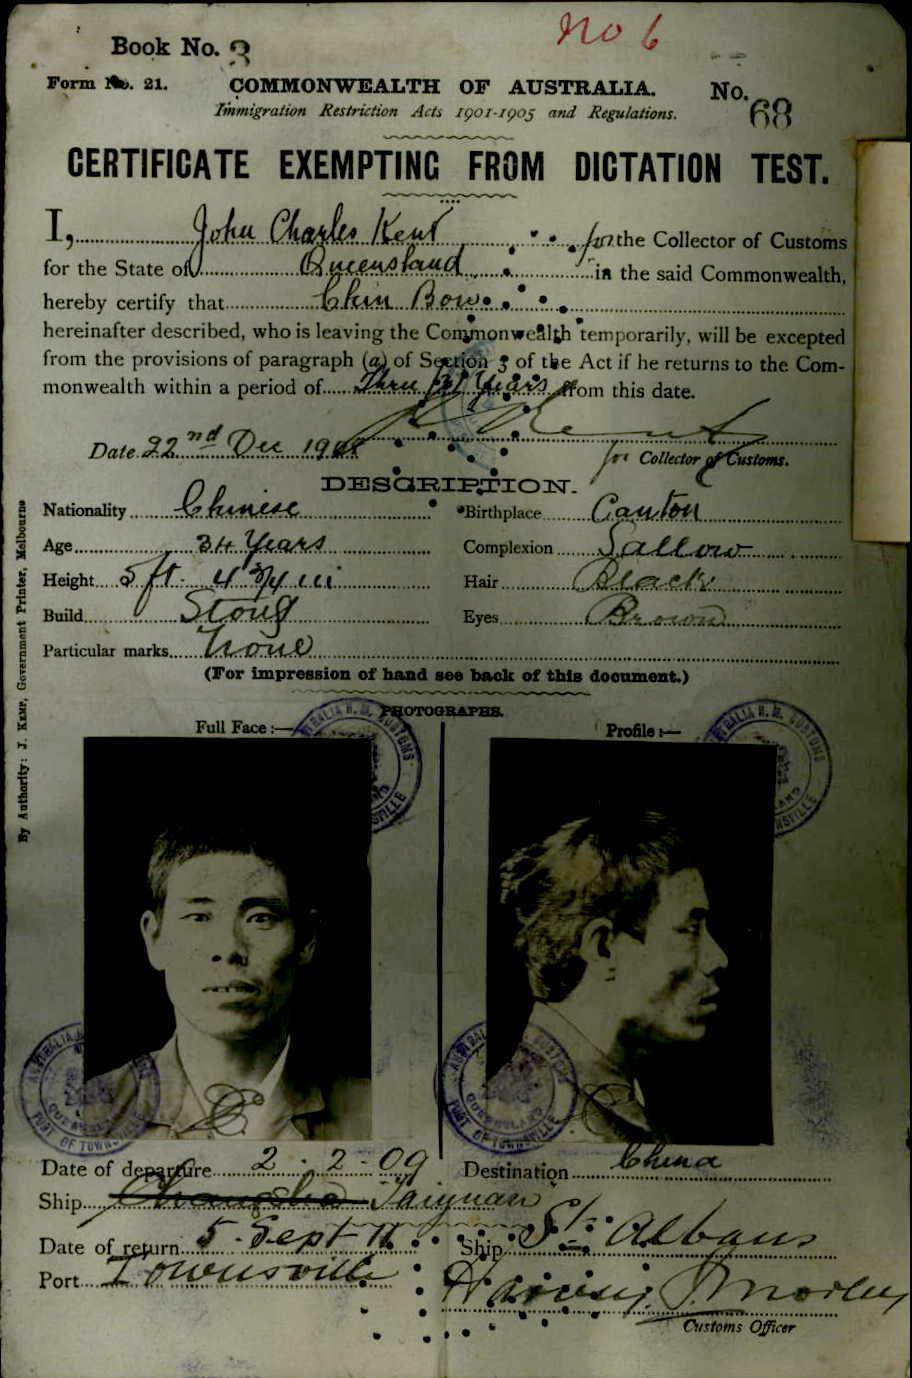 No 6
Book No. 3
Form No. 21. COMMONWEALTH OF AUSTRALIA. No. 68
Immigration Restriction Acts 1901-1905 and Regulations.
CERTIFICATE EXEMPTING FROM DICTATION TEST.
I, John Charles Kent for the Collector of Customs
for the State of Queensland in the said Commonwealth,
hereby certify that Chin Bow
hereinafter described, who is leaving the Commonwealth temporarily, will be excepted
from the provisions of paragraph (a) of Section 3 of the Act if he returns to the Com-
monwealth within a period of Three Years from this date.
Date 22nd Dec 190
for Collector of Customs.
DESCRIPTION.
Nationality Chinese Birthplace Canton
Age 34 Years Complexion Sallow
Height 5 ft. 4 3/4 in Hair Black
Build Stout Eyes Brown
Particular marks None
(For impression of hand see back of this document.)
PHOTOGRAPHS.
Full Face:— Profile:—
Date of departure 2-2-09 Destination China
Ship Changsha Taiyuan
Date of return 5. Sept 11 Ship St. Albans
Port Townsville
Customs Officer
By Authority: J. KEMP, Government Printer, Melbourne